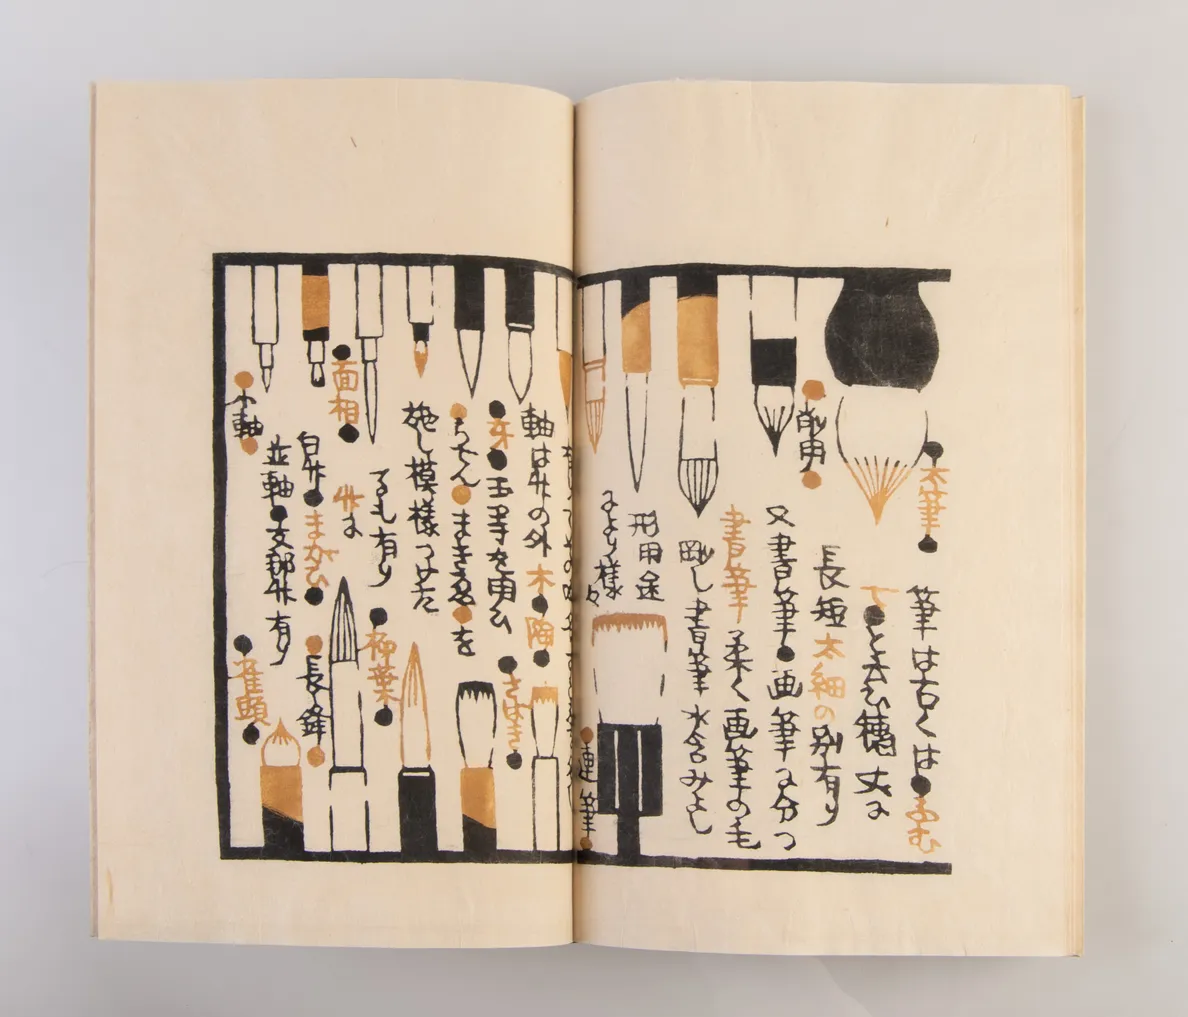 太筆
筆は古くは ふむ
でと云ひ穂丈に
長短 太細の別有り
削用
又書筆 画筆に分つ
書筆 柔く画筆の毛
剛し書筆水含みよし
形用途
により様々
連筆
軸は竹の外 木 陶
牙 玉等を用ひ
さばき
らでん まきゑ を
施し模様つけた
るも有り
柳葉
竹に
面相
白竹 まがひ
長鋒
並軸 支那竹有り
小軸
雀頭